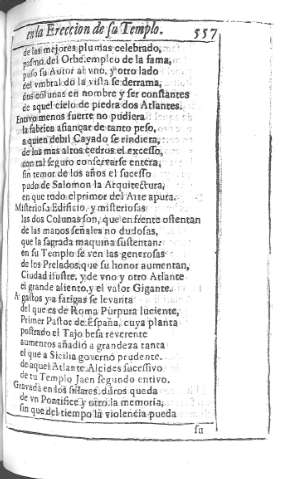 en la Ereccion de su Templo. 557
de las mejores plumas celebrado,
pasmo del Orbe, empleo de la fama,
puso su Autor al vno, y otro lado
del vmbral do la vista se derrama,
dos colunas en nombre y ser constantes
de aquel cielo de piedra dos Atlantes.
En otro menos fuerte no pudiera
la fabrica afiançar de tanto peso,
a quien debil Cayado se rindiera,
de los mas altos cedros el excesso,
con tal seguro conservarse entera,
sin temor de los años el sucesso
pudo de Salomon la Arquitectura,
en que todo el primor del Arte apura.
Misterioso Edificio, y misteriosas
las dos Colunas son, que en frente ostentan
de las manos señales no dudosas,
que la sagrada maquina sustentan:
en su Templo se ven las generosas
de los Prelados, que su honor aumentan,
Ciudad ilustre, y de vno y otro Atlante
el grande aliento, y el valor Gigante.
A gastos y a fatigas se levanta
del que es de Roma Purpura luciente,
Primer Pastor de España, cuya planta
postrado el Tajo besa reverente
aumentos añadiò a grandeza tanta
el que a Sicilia governò prudente.
de aquel Atlante Alcides sucessivo
de tu Templo Jaen segundo entivo.
Gravada en los sillares duros queda
de vn Pontifice y otro la memoria,
sin que del tiempo la violencia pueda
su